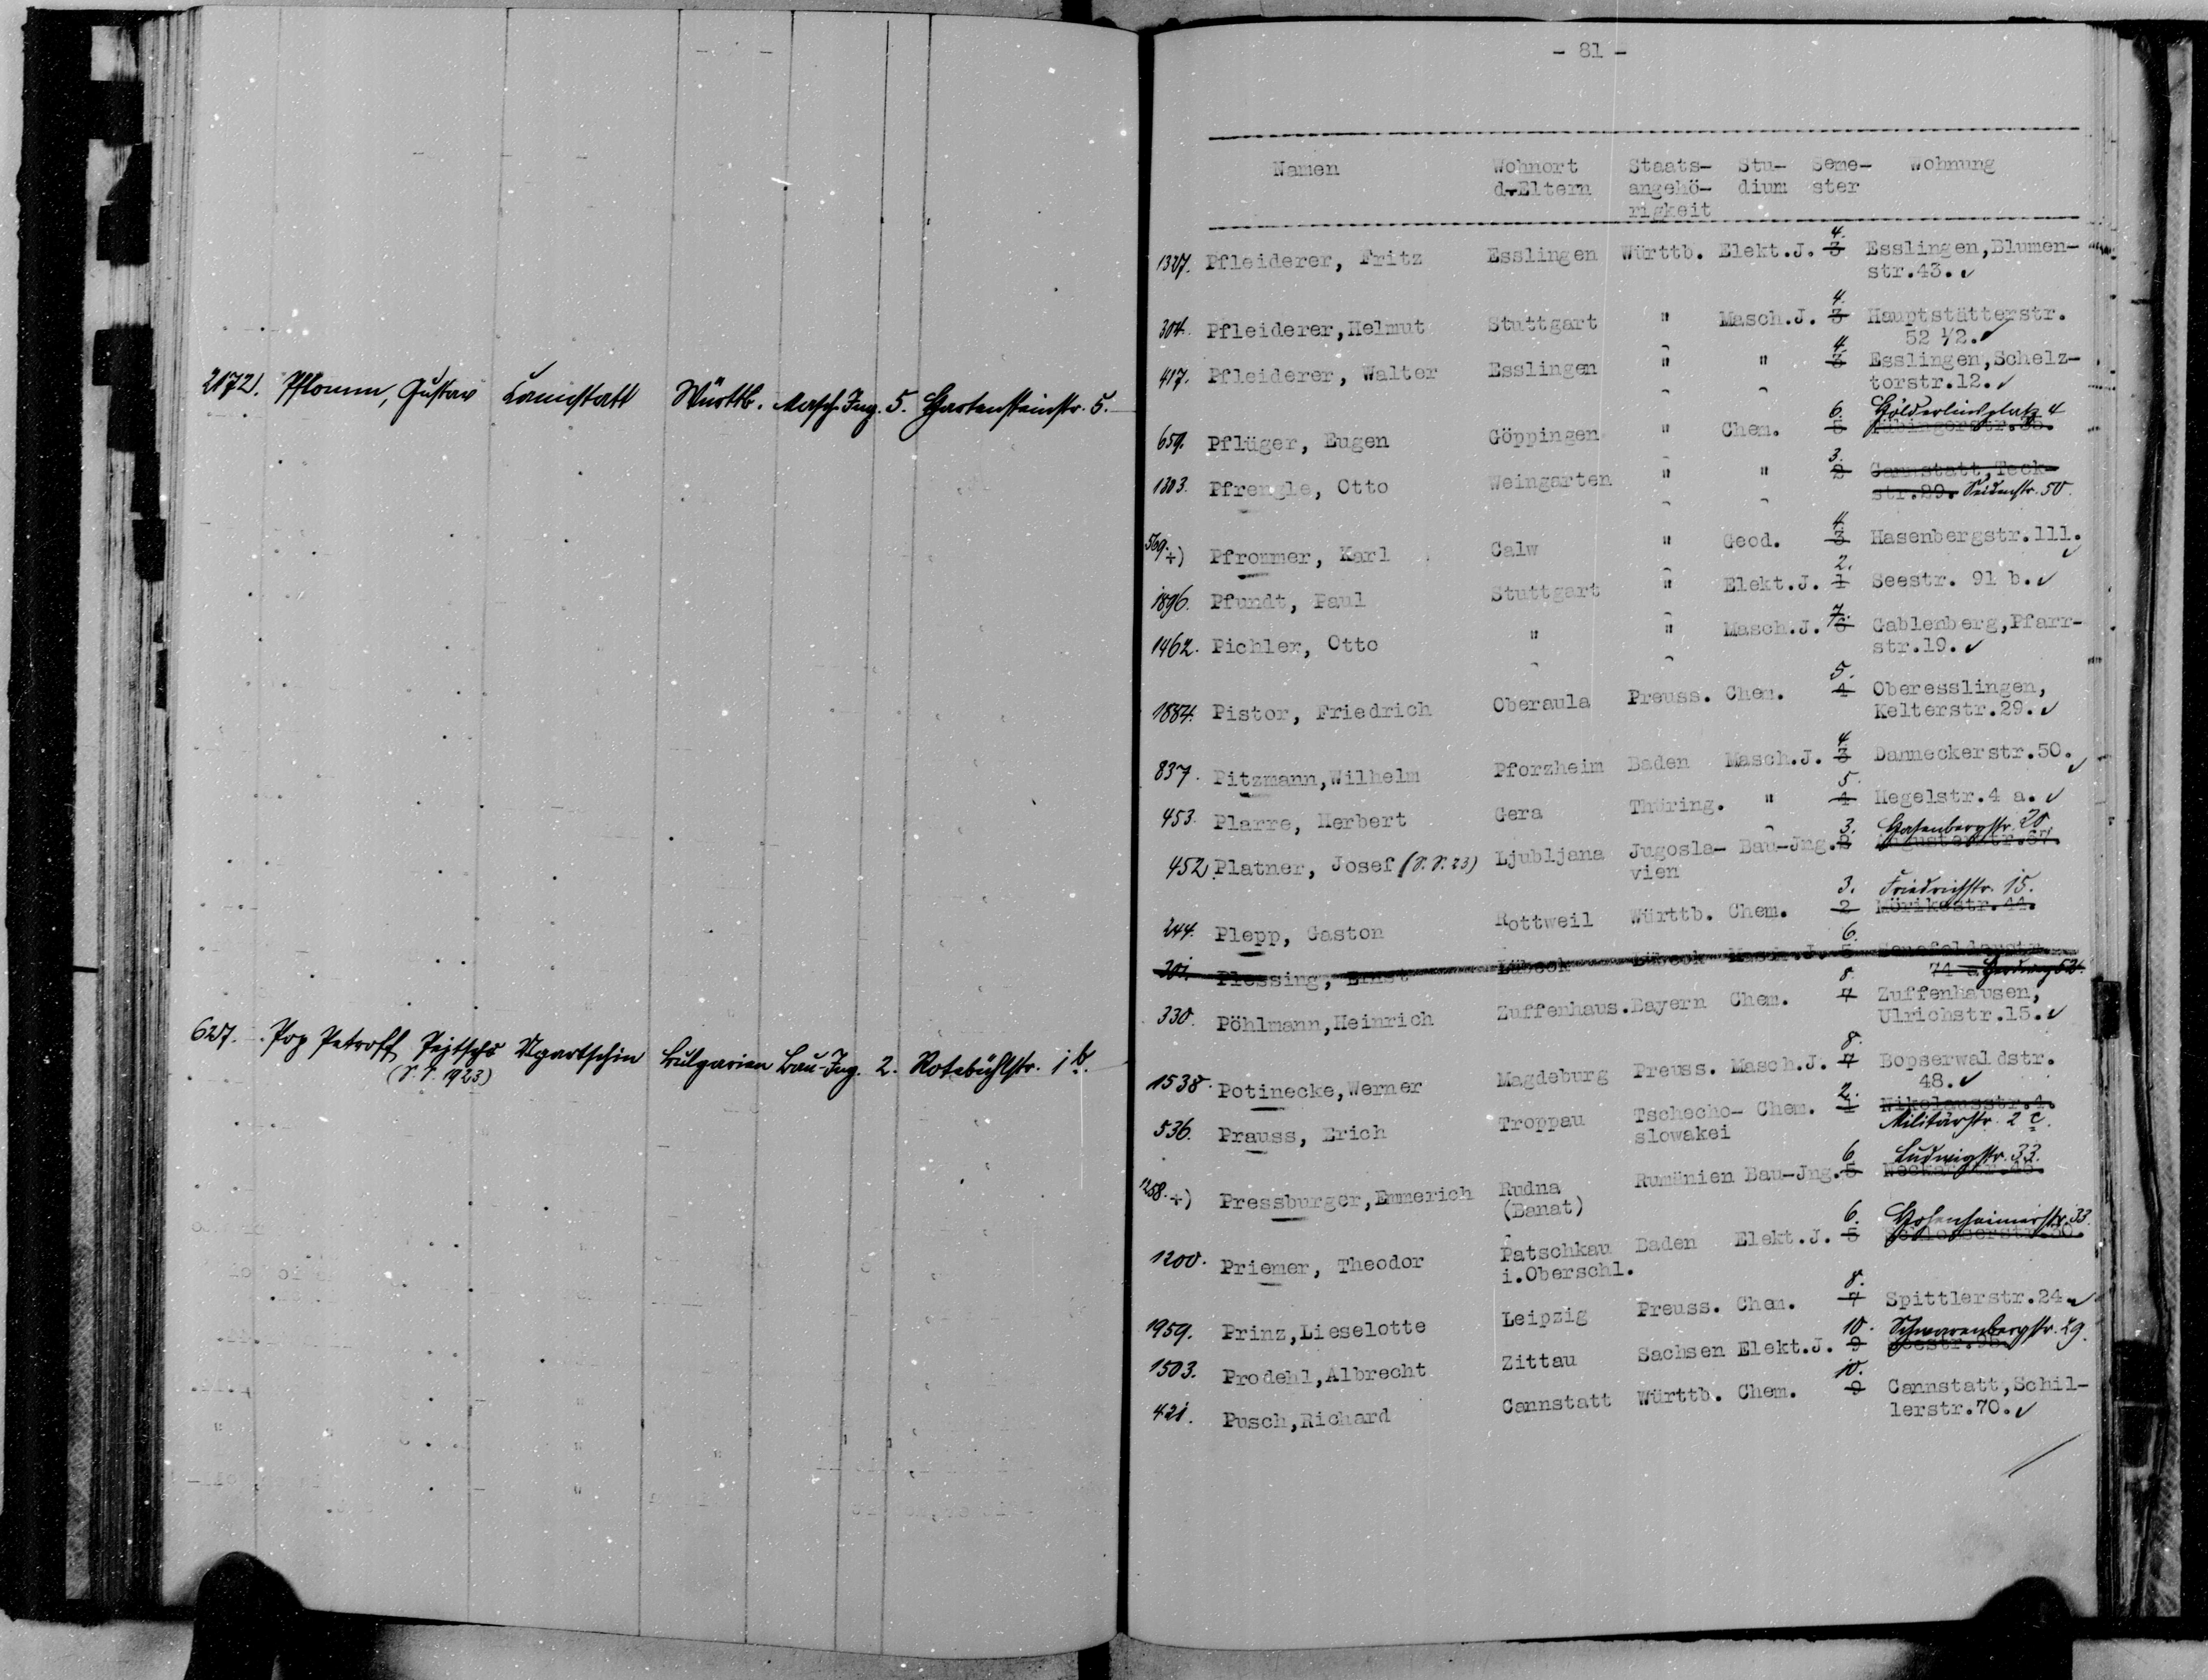 2172. Pflomm, Gustav Cannstatt Württb. Masch. Ing. 5. Hartensteinstr. 5.
627. Pop Petroff Ugartschin Bulgarien Bau-Ing. 2. Rotebühlstr. 1 b.
(S. S. 1923)
- 81 -
Namen Wohnort Staats- Stu- Seme- Wohnung
d.Eltern angehö- dium ster
rigkeit
4.
1327. Pfleiderer, Fritz Esslingen Württb. Elekt.J. 3 Esslingen,Blumen-
str.43. ✓
4.
304. Pfleiderer,Helmut Stuttgart " Masch.J. 3 Hauptstätterstr.
52 1/2. ✓
4.
417. Pfleiderer, Walter Esslingen " " 3 Esslingen,Schelz-
torstr.12. ✓
6. Hölderlinsplatz 4
659. Pflüger, Eugen Göppingen " Chem. 5 Tübingerstr.
3.
1303. Pfrengle, Otto Weingarten " " 2 Cannstatt,Teck-
str.29. Seidenstr. 50.
4.
569. +) Pfrommer, Karl Calw " Geod. 3 Hasenbergstr.111. ✓
2.
1896. Pfundt, Paul Stuttgart " Elekt.J. 1 Seestr. 91 b. ✓
7.
1462. Pichler, Otto " " Masch.J. 6 Gablenberg,Pfarr-
str.19. ✓
5.
1884. Pistor, Friedrich Oberaula Preuss. Chem. 4 Oberesslingen,
Kelterstr.29. ✓
4.
837. Pitzmann,Wilhelm Pforzheim Baden Masch.J. 3 Danneckerstr.50. ✓
5.
453. Plarre, Herbert Gera Thüring. " 4 Hegelstr.4 a. ✓
3. Hasenbergstr. 20
452. Platner, Josef (S.S.23) Ljubljana Jugosla- Bau-Jng. 2
vien
3. Friedrichstr. 15.
244. Plepp, Gaston Rottweil Württb. Chem. 2 Mörikestr.44.
6.
301. Plessing, Ernst Lübeck Lübeck Masch.J. 5 Senefelderstr.
74 a Herdweg 52.
8.
330. Pöhlmann,Heinrich Zuffenhaus. Bayern Chem. 7 Zuffenhausen,
Ulrichstr.15. ✓
8.
1538. Potinecke,Werner Magdeburg Preuss. Masch.J. 7 Bopserwaldstr.
48. ✓
2.
536. Prauss, Erich Troppau Tschecho- Chem. 1 Nikolausstr.4.
slowakei Militärstr. 2 c.
6. Ludwigstr. 33.
1258. +) Pressburger,Emmerich Rudna Rumänien Bau-Jng. 5 Neckarstr.
(Banat)
6. Hohenheimerstr. 33.
1200. Priemer, Theodor Patschkau Baden Elekt.J. 5
i.Oberschl.
8.
1959. Prinz,Lieselotte Leipzig Preuss. Chem. 7 Spittlerstr.24. ✓
10. Schwarenbergstr. 29.
1503. Prodehl,Albrecht Zittau Sachsen Elekt.J. 9
10.
421. Pusch,Richard Cannstatt Württb. Chem. 9 Cannstatt,Schil-
lerstr.70. ✓